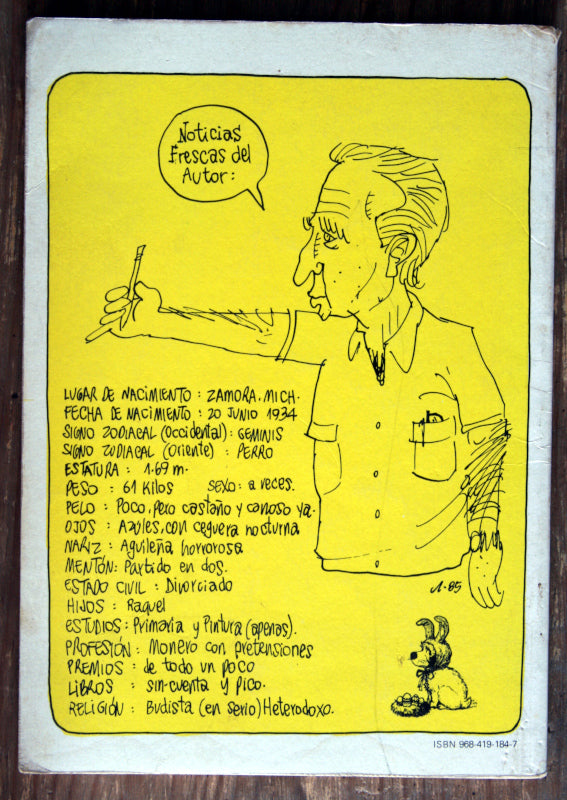 Noticias
Frescas del
Autor:
LUGAR DE NACIMIENTO : ZAMORA, MICH.
FECHA DE NACIMIENTO : 20 JUNIO 1934
SIGNO ZODIACAL (Occidental) : GEMINIS
SIGNO ZODIACAL (Oriente) : PERRO
ESTATURA : 1.69 m.
PESO : 61 Kilos SEXO: a veces.
PELO : Poco, pero castaño y canoso ya.
OJOS : Azules, con ceguera nocturna
NARIZ : Aguileña horrorosa
MENTÓN: Partido en dos.
ESTADO CIVIL : Divorciado
HIJOS : Raquel
ESTUDIOS : Primaria y Pintura (apenas).
PROFESIÓN : Monero con pretensiones
PREMIOS : de todo un poco
LIBROS : sin-cuenta y pico.
RELIGIÓN : Budista (en serio) Heterodoxo.
ISBN 968-419-184-7